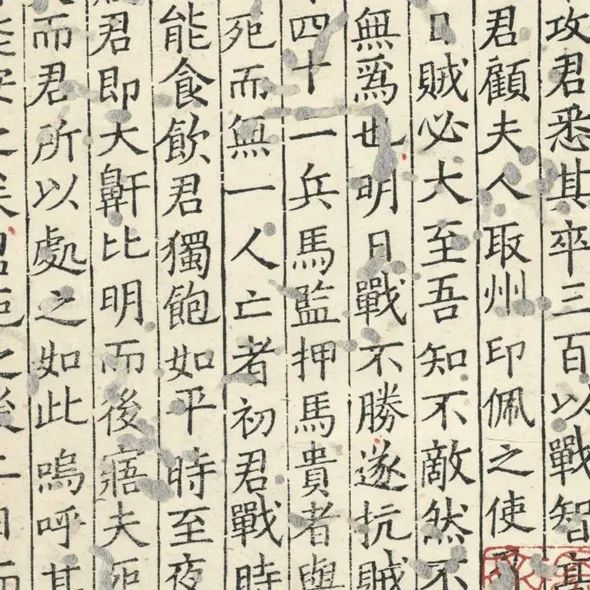 攻君悉其卒三百以戰智高
君顧夫人取州印佩之使
曰賊必大至吾知不敵然不
無爲也明日戰不勝遂抗賊
四十一兵馬監押馬貴者與
死而無一人亡者初君戰時
能食飲君獨飽如平時至夜
君即大鼾比明而後寤夫死
而君所以處之如此嗚呼其